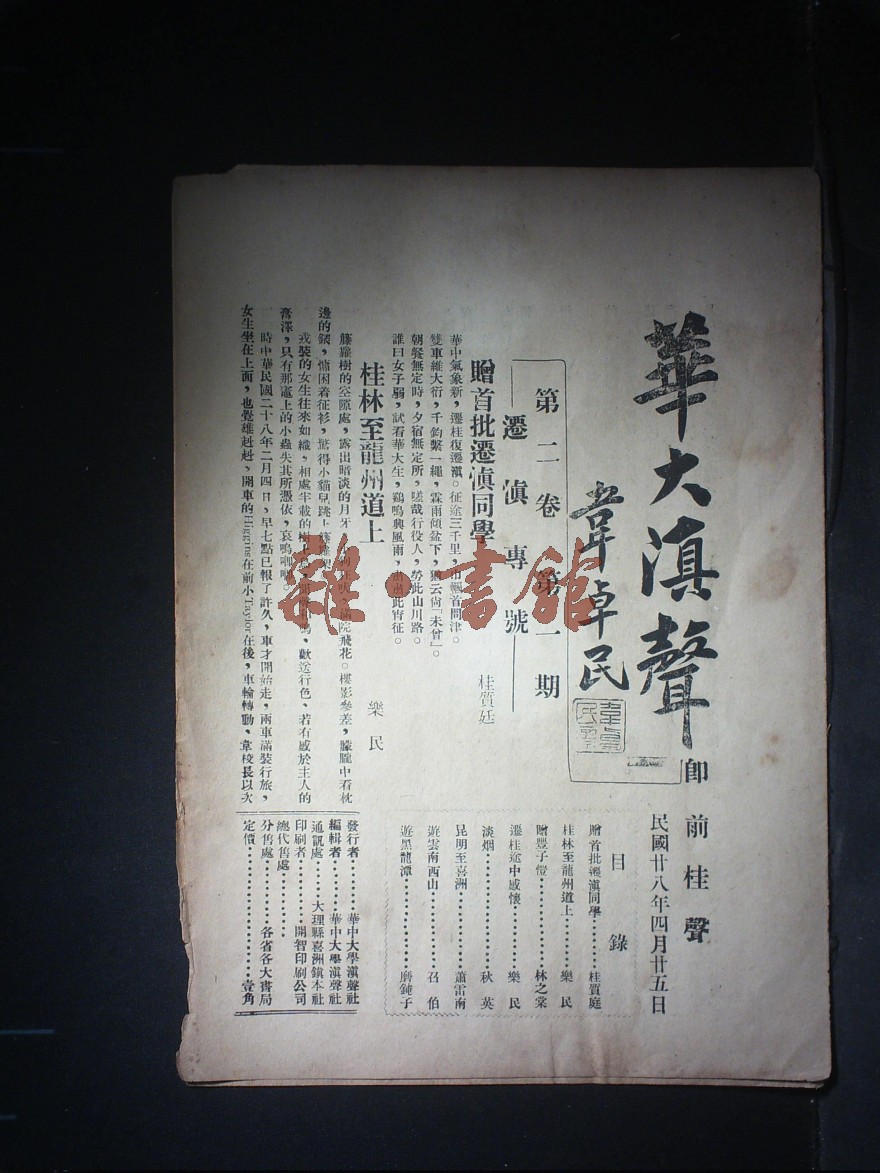 華大滇聲
韋卓民
即前桂聲
民國廿八年四月廿五日
第二卷第一期
遷滇專號
目錄
贈首批遷滇同學………桂質庭
桂林至龍州道上………樂民
贈豐子愷………林之棠
遷桂途中感懷………樂民
淡烟………秋英
昆明至喜洲………蕭雷南
遊雲南西山………召伯
遊黑龍潭………磨鈍子
贈首批遷滇同學
桂質廷
華中氣象新，遷桂復遷滇。征途三千里，首問津。
雙車維大衍，千鈞繫一繩，霖雨傾盆下，猶云尙「未曾」。
朝餐無定時，夕宿無定所，嗟哉行役人，勞此山川路。
誰曰女子弱，試看華大生，鷄鳴興風雨，此宵征。
桂林至龍州道上
樂民
籐蘿樹的空隙處，露出暗淡的月牙，院飛花。樓影參差，朦朧中看枕
邊的錶，慵困着征衫，驚得小貓兒跳上
戎裝的女生往來如織，相處半載的，歡送行色，若有感於主人的
膏澤，只有那竈上的小蟲失其所憑依，哀鳴唧唧。
時中華民國二十八年二月四日，早七點已報了許久，車才開始走，兩車滿裝行旅，
女生坐在上面，也覺雄赳赳，開車的Higgins在前小Taylor在後，車輪轉動，韋校長以次
發行者………華中大學滇聲社
編輯者………華中大學滇聲社
通訊處………大理縣喜洲鎮本社
印刷者………開智印刷公司
總代售處………
分售處………各省各大書局
定價………壹角
雜·書館